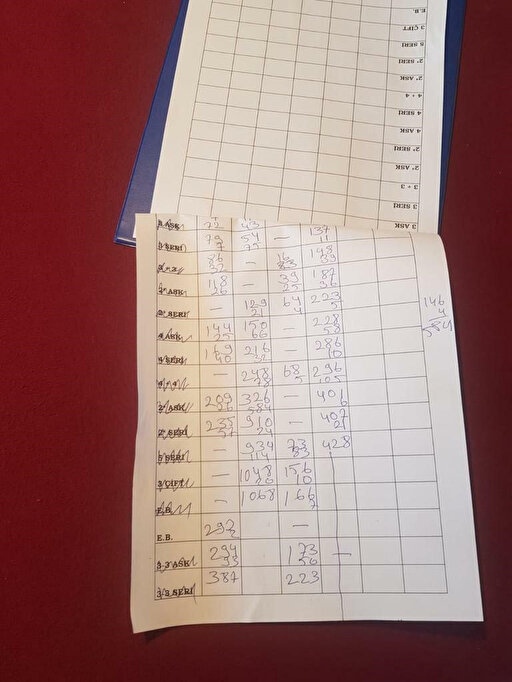 E.B.
3 ÇİFT
5 SERİ
2' SERİ
2' ASK
4 + 4
4 SERİ
4 ASK
2' SERİ
2' ASK
3 + 3
3 SERİ
3 ASK
3 ASK 72 43 137
3 SERİ 79 54 — 11
7 75 148
86 — 16 39
32 23
2' ASK 118 — 39 187
26 25 36
2' SERİ — 129 64 223
21 4 5
4 ASK 144 150 — 228
25 66 58
4 SERİ 169 216 — 286
40 32 10
4 + 4 — 248 68 296
78 5 105
2' ASK 209 326 — 401
26 584 6
2' SERİ 235 910 — 407
24 21
5 SERİ — 934 73 428
114 83
3 ÇİFT — 1048 156
20 10
E.B. — 1068 166
7
E.B. 292 —
2
3-3 ASK 294 173 —
93 50
3/3 SERİ 387 223
146
4
584